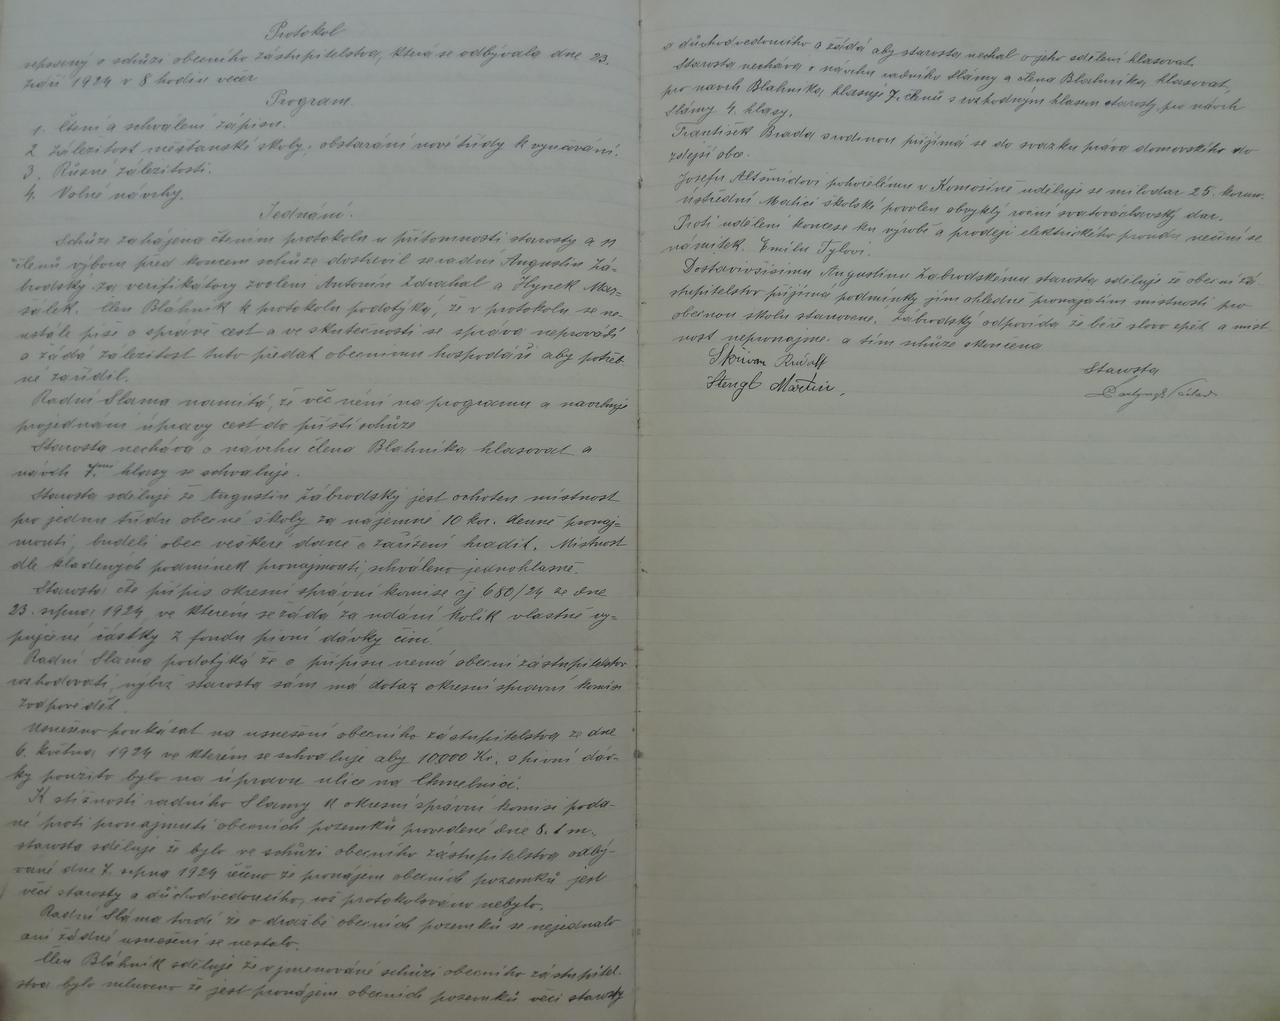 Protokol
sepsaný o schůzi obecního zástupitelstva, která se odbývala dne 23.
září 1924 v 8 hodin večer
Program.
1. Čtení a schválení zápisu.
2. Záležitost měšťanské školy, obstarání nové třídy k vyučování.
3. Různé záležitosti.
4. Volné návrhy.
Jednání.
Schůze zahájena čtením protokolu v přítomnosti starosty a 11
členů výboru před koncem schůze dostavil se radní Augustin Zá-
brodský za verifikátory zvoleni Antonín Zdrahal a Hynek Mar-
šálek. Člen Bláhník k protokolu podotýká, že v protokolu se ne-
ustále píše o správě cest a ve skutečnosti se správa neprovádí
a žádá záležitost tuto předat obecnímu hospodáři aby potřeb-
né zařídil.
Radní Sláma namítá, že věc není na programu a navrhuje
projednání úpravy cest do příští schůze
Starosta nechává o návrhu člena Blahníka hlasovat a
návrh 7mi hlasy se schvaluje.
Starosta sděluje že Augustin Zábrodský jest ochoten místnost
pro jednu třídu obecné školy za nájemné 10 kor. denně pronaj-
mouti, budeli obec veškeré daně a zařízení hradit. Místnost
dle kladených podmínek pronajmouti, schváleno jednohlasně.
Starosta čte přípis okresní správní komise čj 680/24 ze dne
23. srpna 1924 ve kterém se žádá za udání kolik vlastně vy-
pujčené částky z fondu pivní dávky činí
Radní Sláma podotýká že o přípisu nemá obecní zástupitelstvo
rozhodovati, nýbrž starosta sám má dotaz okresní správní komise
zodpovědět.
Usneseno poukázat na usnesení obecního zástupitelstva ze dne
6. května 1924 ve kterém se schvaluje aby 10000 Kč. s pivní dáv-
ky použito bylo na úpravu ulice na Chmelnici.
K stížnosti radního Slámy k okresní správní komisi poda-
né proti pronajmutí obecních pozemků provedené dne 8. t m.
starosta sděluje že bylo ve schůzi obecního zástupitelstva odbý-
vané dne 7. srpna 1924 řečeno že pronájem obecních pozemků jest
věcí starosty a důchodvedoucího, což protokolováno nebylo.
Radní Sláma tvrdí že o dražbě obecních pozemků se nejednalo
ani žádné usnešení se nestalo.
Člen Bláhník sděluje že v jmenované schůzi obecního zástupitel-
stva bylo mluveno že jest pronájem obecních pozemků věcí starosty
a důchodvedoucího a žádá aby starosta nechal o jeho sdělení hlasovat.
Starosta nechává o návrhu radního Slámy a člena Blahníka, hlasovat,
pro návrh Blahníka, hlasuje 7. členů s rozhodným hlasem starosty pro návrh
Slámy 4. hlasy.
František Brada s rodinou přijímá se do svazku práva domovského do
zdejší obce.
Josefu Altšmídovi pohořelému v Komošíně uděluje se milodar 25. korun.
ústřední Matici školské povolen obvyklý roční svatováclavský dar.
Proti udělení koncese ku výrobě a prodeji elektrického proudu nečiní se
námitek. Emilu Tylovi.
Dostavivšísimu Augustinu Zabrodskému starosta sděluje že obecní zá-
stupitelstvo přijímá podmínky jím ohledně pronajatím místnosti pro
obecnou školu stanovené. Zábrodský odpovídá že béře slovo zpět a míst
nost nepronajme. a tím schůze skončena
Skřivan Rudolf
Stengl Martin.
Starosta